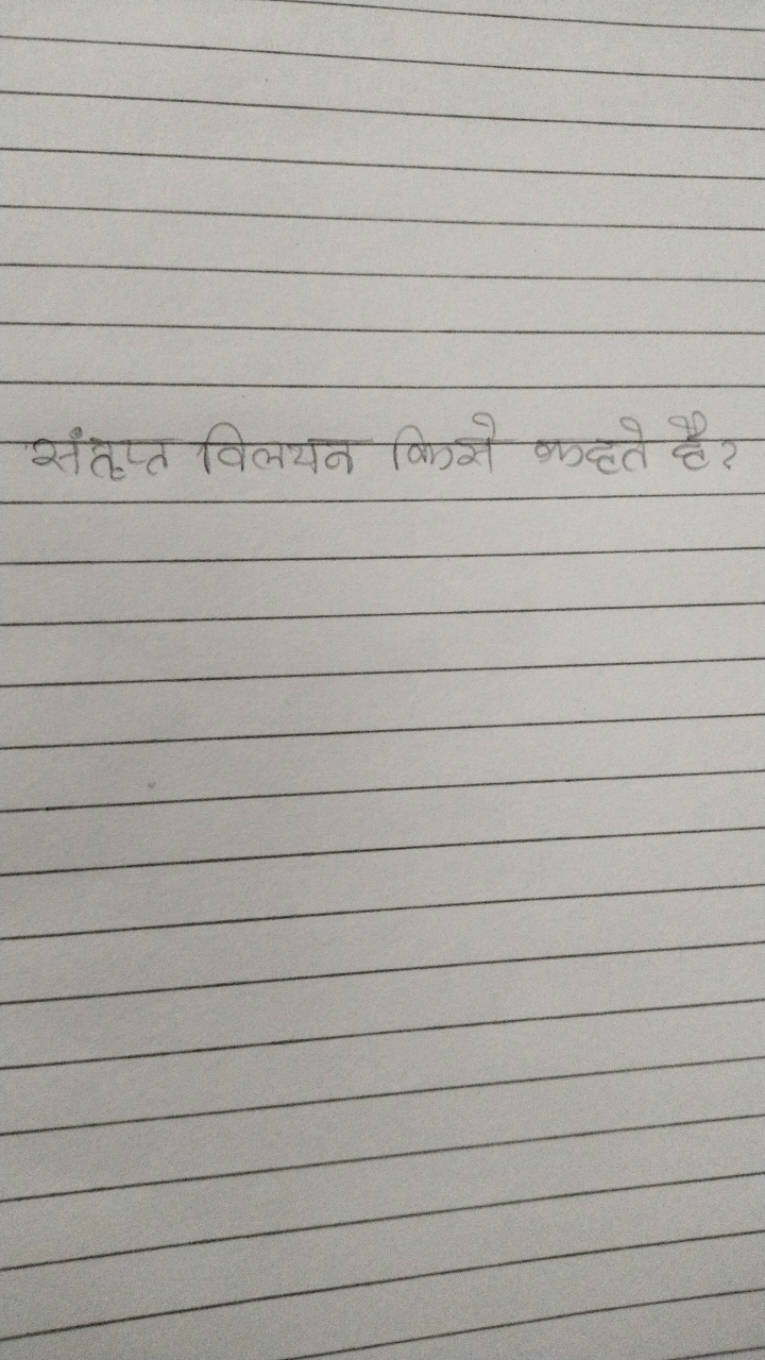 संतृप्त विलयन किसे कहते है?